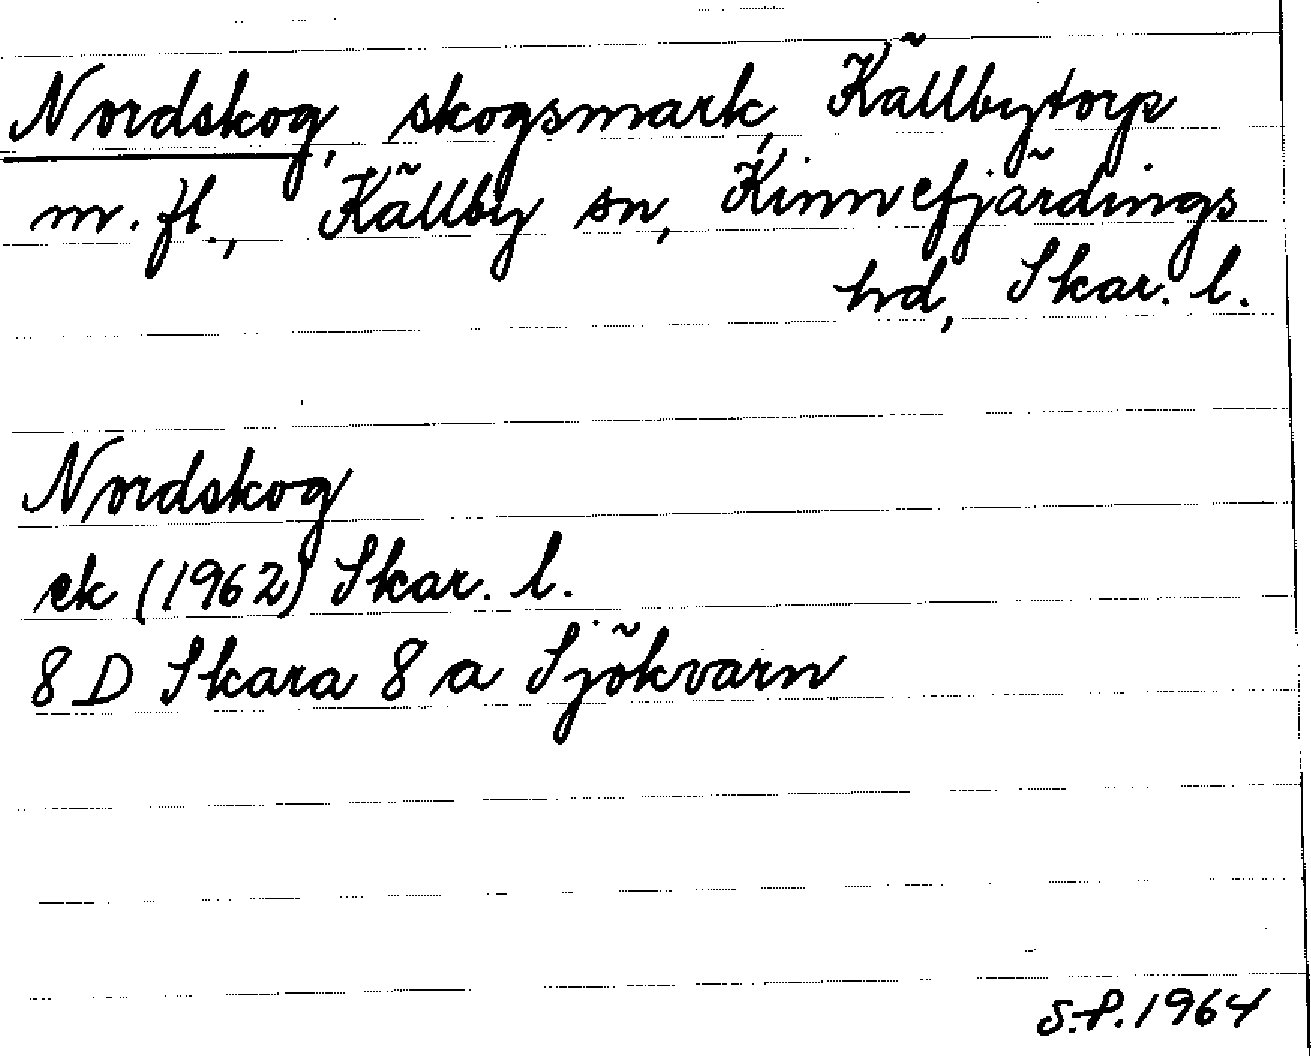 Nordskog, skogsmark, Källbytorp
m. fl., Källby sn, Kinnefjärdings
hd, Skar. l.
Nordskog
ek (1962) Skar. l.
8 D Skara 8 a Sjökvarn
S.P. 1964